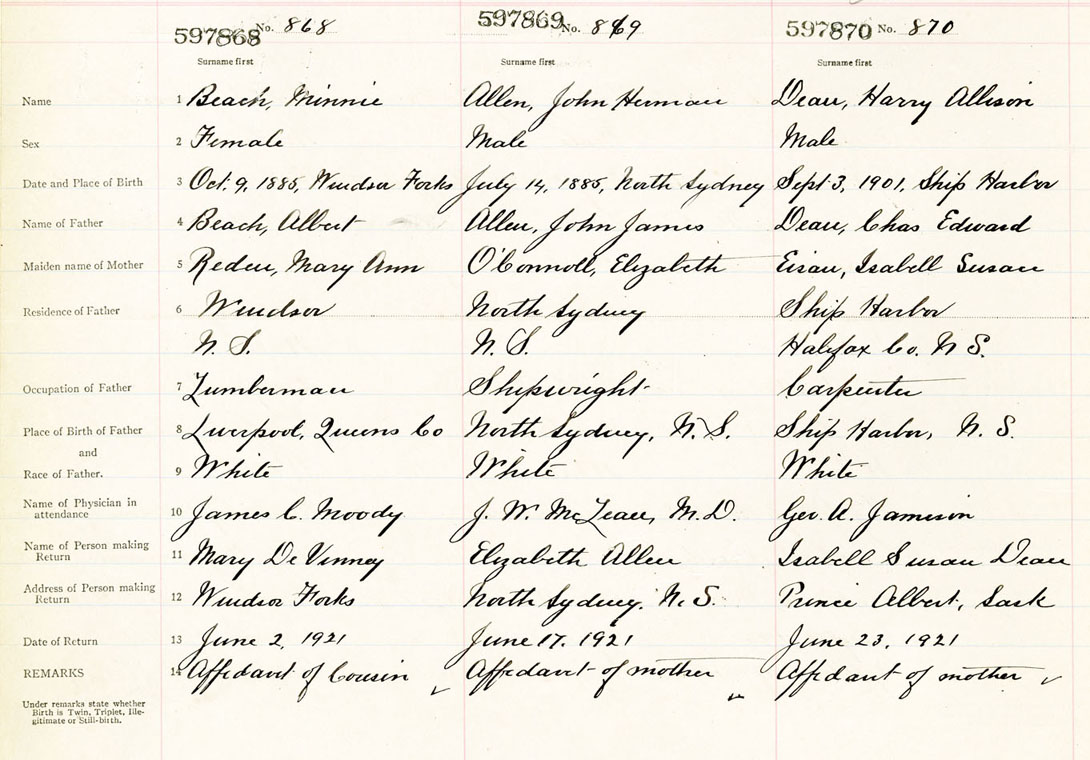 597868 No. 868 597869 No. 869 597870 No. 870
Surname first Surname first Surname first
Name 1 Beach, Minnie Allen, John Herman Dean, Harry Allison
Sex 2 Female Male Male
Date and Place of Birth 3 Oct. 9, 1885, Windsor Forks July 14, 1885, North Sydney Sept 3, 1901, Ship Harbor
Name of Father 4 Beach, Albert Allen, John James Dean, Chas Edward
Maiden name of Mother 5 Reden, Mary Ann O'Connoll, Elizabeth Eisan, Isabell Susan
Residence of Father 6 Windsor North Sydney Ship Harbor
N. S. N. S. Halifax Co. N S.
Occupation of Father 7 Lumberman Shipwright Carpenter
Place of Birth of Father 8 Liverpool, Queens Co North Sydney, N. S. Ship Harbor, N. S.
and
Race of Father. 9 White White White
Name of Physician in
attendance 10 James C. Moody J. W. McLean, M.D. Geo. A. Jamison
Name of Person making
Return 11 Mary De Vinney Elizabeth Allen Isabell Susan Dean
Address of Person making
Return 12 Windsor Forks North Sydney, N. S. Prince Albert, Sask
Date of Return 13 June 2, 1921 June 17, 1921 June 23, 1921
REMARKS 14 Affidavit of Cousin Affidavit of mother Affidavit of mother
Under remarks state whether
Birth is Twin, Triplet, Ille-
gitimate or Still-birth.